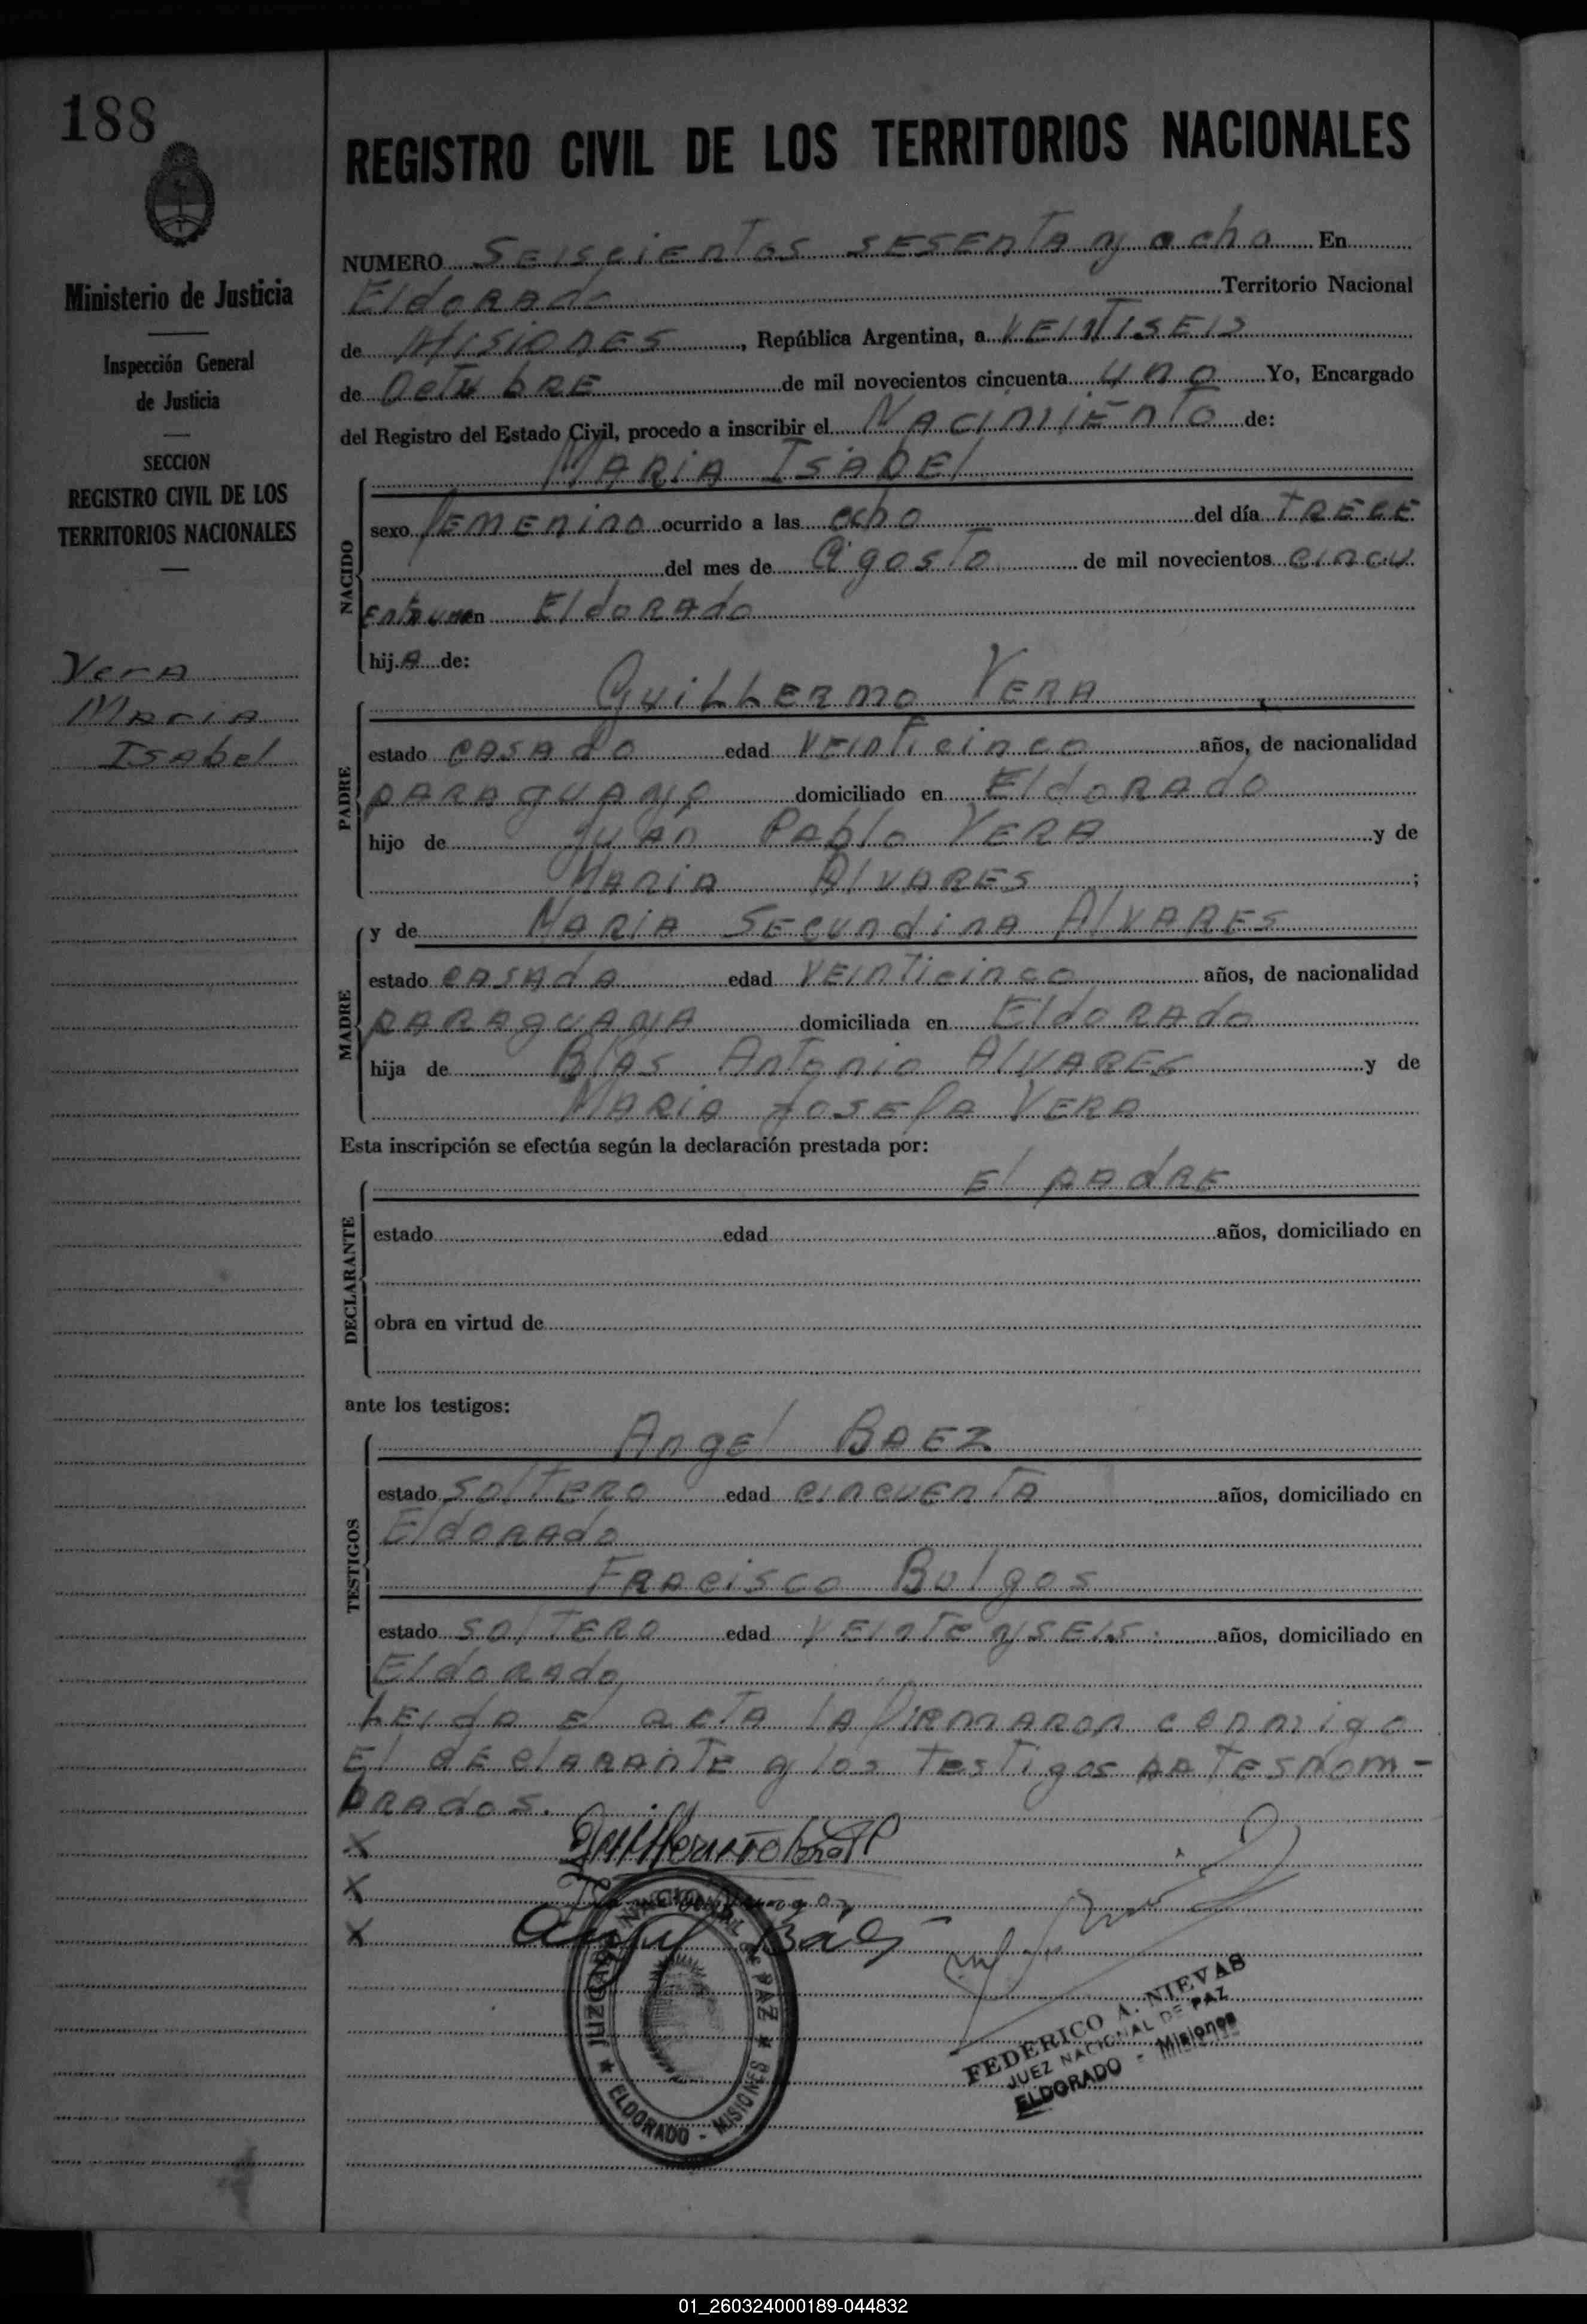 188
REGISTRO CIVIL DE LOS TERRITORIOS NACIONALES
Ministerio de Justicia
Inspección General
de Justicia
SECCION
REGISTRO CIVIL DE LOS
TERRITORIOS NACIONALES
Vera
Maria
Isabel
NUMERO Seiscientos sesenta y ocho En
Eldorado Territorio Nacional
de Misiones, República Argentina, a Veintiseis
de Octubre de mil novecientos cincuenta uno Yo, Encargado
del Registro del Estado Civil, procedo a inscribir el Nacimiento de:
NACIDO
Maria Isabel
sexo femenino ocurrido a las ocho del día trece
del mes de Agosto de mil novecientos cincu
enta uno en Eldorado
hija de:
PADRE
Guillermo Vera
estado casado edad veinticinco años, de nacionalidad
paraguayo domiciliado en Eldorado
hijo de Juan Pablo Vera y de
Maria Alvares;
MADRE
y de Maria Secundina Alvares
estado casada edad veinticinco años, de nacionalidad
paraguaya domiciliada en Eldorado
hija de Blas Antonio Alvares y de
Maria Josefa Vera
Esta inscripción se efectúa según la declaración prestada por:
DECLARANTE
El padre
estado edad años, domiciliado en
obra en virtud de
ante los testigos:
TESTIGOS
Angel Baez
estado soltero edad cincuenta años, domiciliado en
Eldorado
Fracisco Bulgos
estado soltero edad veinte y seis años, domiciliado en
Eldorado
Leida el acta la firmaron conmigo
El declarante y los testigos antesnom-
brados.
X Guillermo Vera
X
X Angel Báez
JUZGADO NACIONAL DE PAZ
ELDORADO - MISIONES
FEDERICO A. NIEVAS
JUEZ NACIONAL DE PAZ
ELDORADO - Misiones
01_260324000189-044832